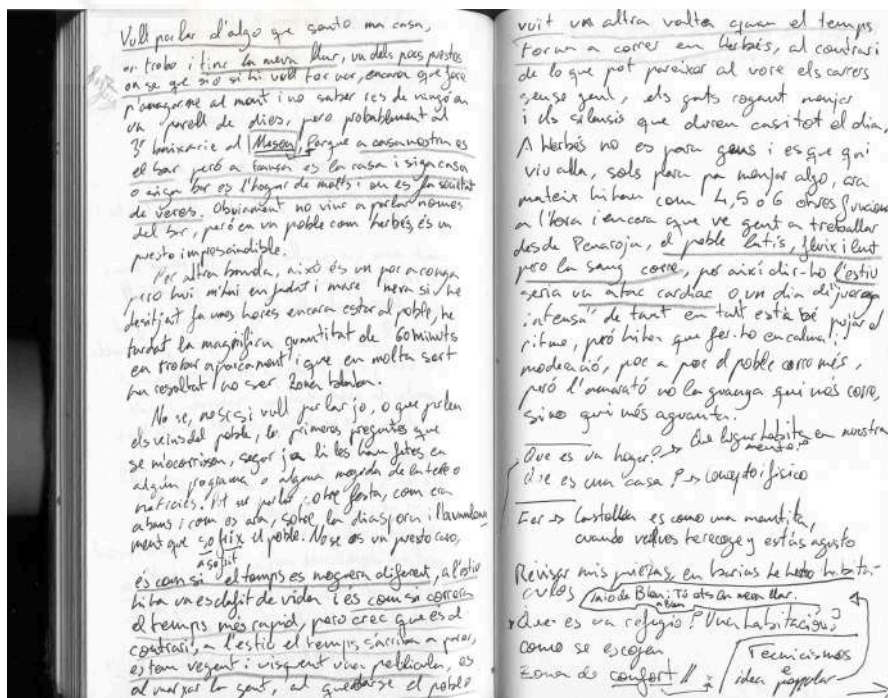 Vull parlar d'algo que sento ma casa,
on trobo i tinc la meva llar, un dels pocs puestos
on se que sio si hi vull tornar, encara que fora
p'amagarme al mont i no saber res de ningú en
un parell de dies, pero probablement al
3r baixaria al Meson, Porque a casa nostra es
el bar però a fausa es la casa i siga casa
o siga bar es l'hogar de molts i on es fa societat
de veres. Obviament no vinc a parlar nomes
del bar, però en un poble com herbés, és un
puesto imprescindible.
Per altra banda, aixó és un poc a conya
pero hui m'hai enfadat i mare meva si he
desitjat fa unes hores encara estar al poble, he
tardat la magnifica quantitat de 60 minuts
en trobar aparcament i que en molta sort
ha resultat no ser Zona blava.
No se, no se si vull parlar jo, o que parlen
els veins del poble, les primeres preguntes que
se m'ocorrixen, segur ja li les han fetes en
algún programa o alguna mogada de
noticies. Pot ser parlar sobre festa, com era
abans i com es ara, sobre la diaspora i l'abandona
ment que sofrix el poble. No se es un puesto
és com si el temps es moguera diferent, a l'estiu
hi ha un esclafit de vida i és com si correra
el temps més rapid, pero crec que és al
contrari, a l'estiu el temps s'arriba a parar,
estam vegent i visquent una pel·licula, es
al marxar la gent, al quedarse el poble
vuit un altra volta quan el temps
torna a correr en Herbés, al contrari
de lo que pot pareixer al vore els carrers
sense gent, els gats rogant menjar
i els silensis que duren casi tot el dia.
A Herbés no es para gens i es que qui
viu alla, sols para pa menjar algo, ara
mateix hi han com 4, 5 o 6 obres funcionant
a l'hora i encara que ve gent a treballar
desde Penaroja, el poble latís, fluix i lent
pero la sang corre, per aixi dir-ho l'estiu
seria un atac cardiac o un dia de "juerga
intensa" de tant en tant està bé pujar el
ritme, però hi han que fer-ho en calma i
moderació, poc a poc el poble corre més,
però l'amarató no la guanya qui més corre,
sino qui més aguanta.
Que es un hogar? → Que lugar habita en nuestra
mente?
Que es una casa? → concepto físico
Fer → Castellón es como una mantita,
cuando vuelves te recoge y estás agusto
Revisar mis piezas, en varias he hecho habita-
culos
Tú ets la meva llar.
Que es un refugio? Una habitación?
como se escogen
Zona de confort //
Tecnicismos
e
idea popular